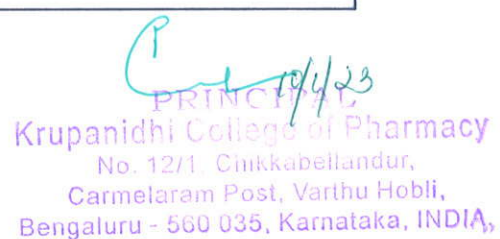 10/1/23
PRINCIPAL
Krupanidhi College of Pharmacy
No. 12/1, Chikkabellandur,
Carmelaram Post, Varthu Hobli,
Bengaluru - 560 035, Karnataka, INDIA,